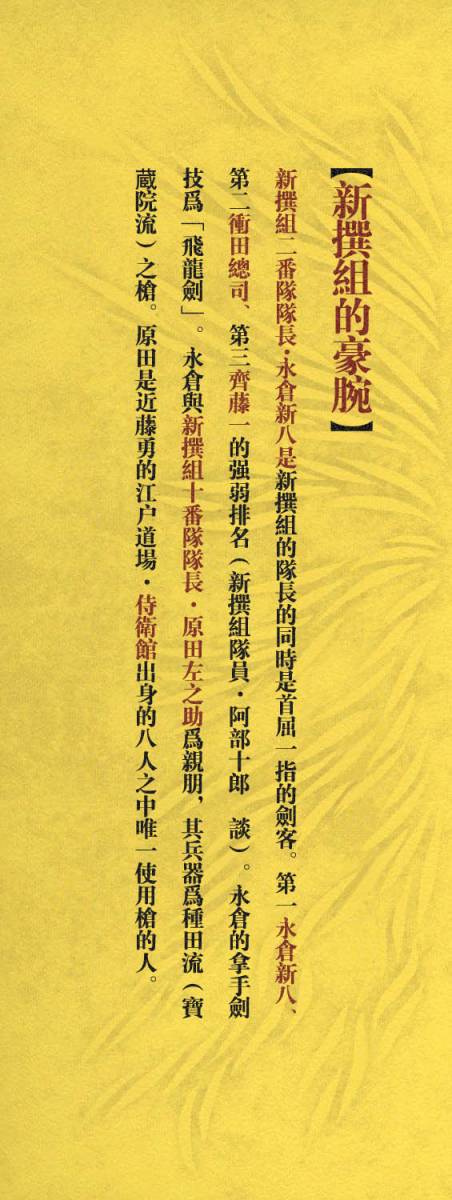 【新撰組的豪腕】
新撰組二番隊隊長·永倉新八是新撰組的隊長的同時是首屈一指的劍客。第一永倉新八、
第二衝田總司、第三齊藤一的强弱排名(新撰組隊員·阿部十郎 談)。永倉的拿手劍
技爲「飛龍劍」。永倉與新撰組十番隊隊長·原田左之助爲親朋,其兵器爲種田流(寶
蔵院流)之槍。原田是近藤勇的江户道場·侍衛館出身的八人之中唯一使用槍的人。